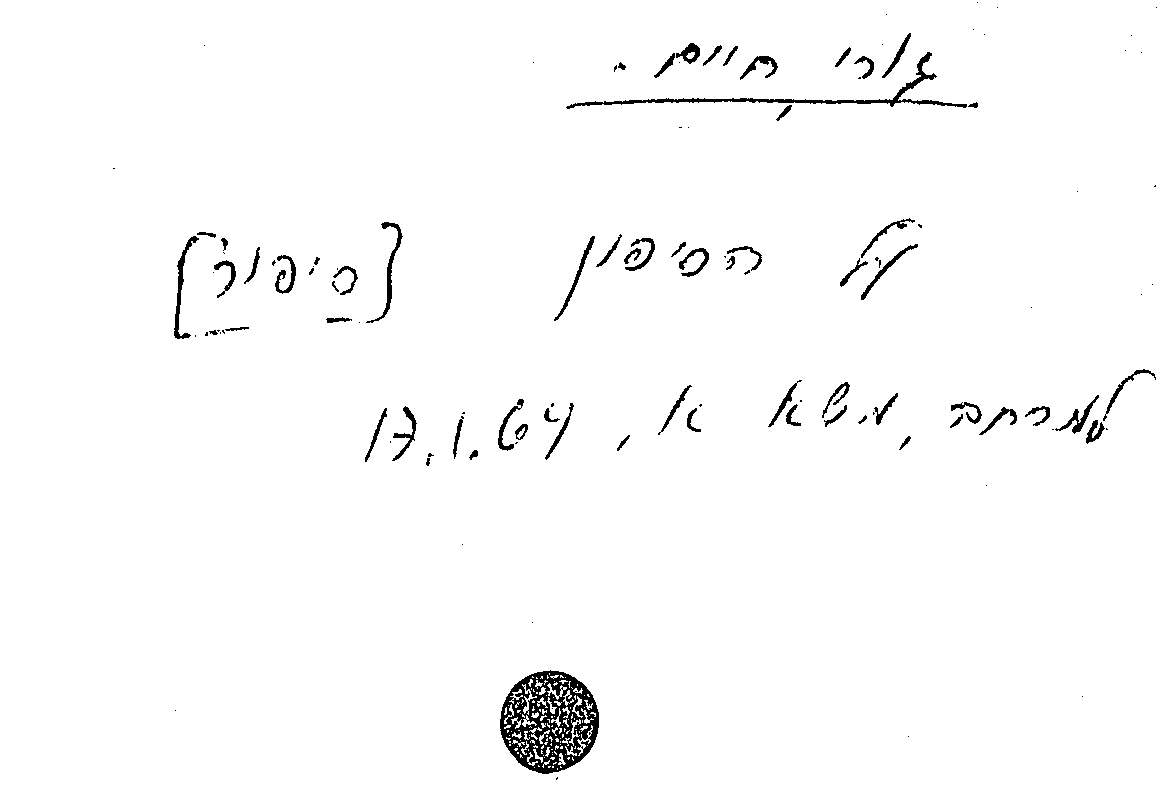 גורי, חיים.
על הסיפון [סיפור]
למרחב, משא א, 17.1.64